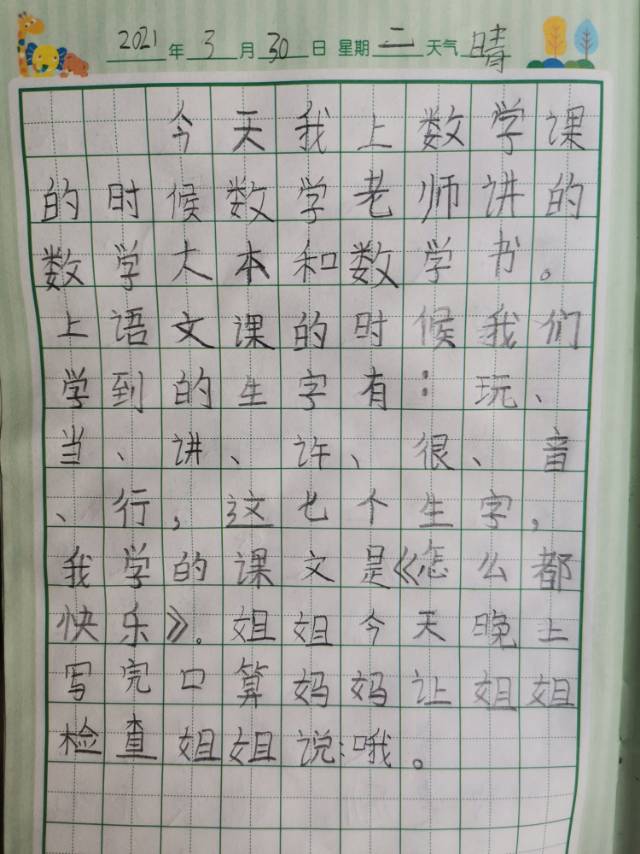 2021年3月30日 星期二天气晴
今天我上数学课
的时候数学老师讲的
数学大本和数学书。
上语文课的时候我们
学到的生字有：玩、
当、讲、许、很、音
、行，这七个生字，
我学的课文是《怎么都
快乐》。姐姐今天晚上
写完口算妈妈让姐姐
检查姐姐说：哦。